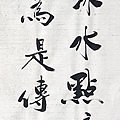 水點
為是傳